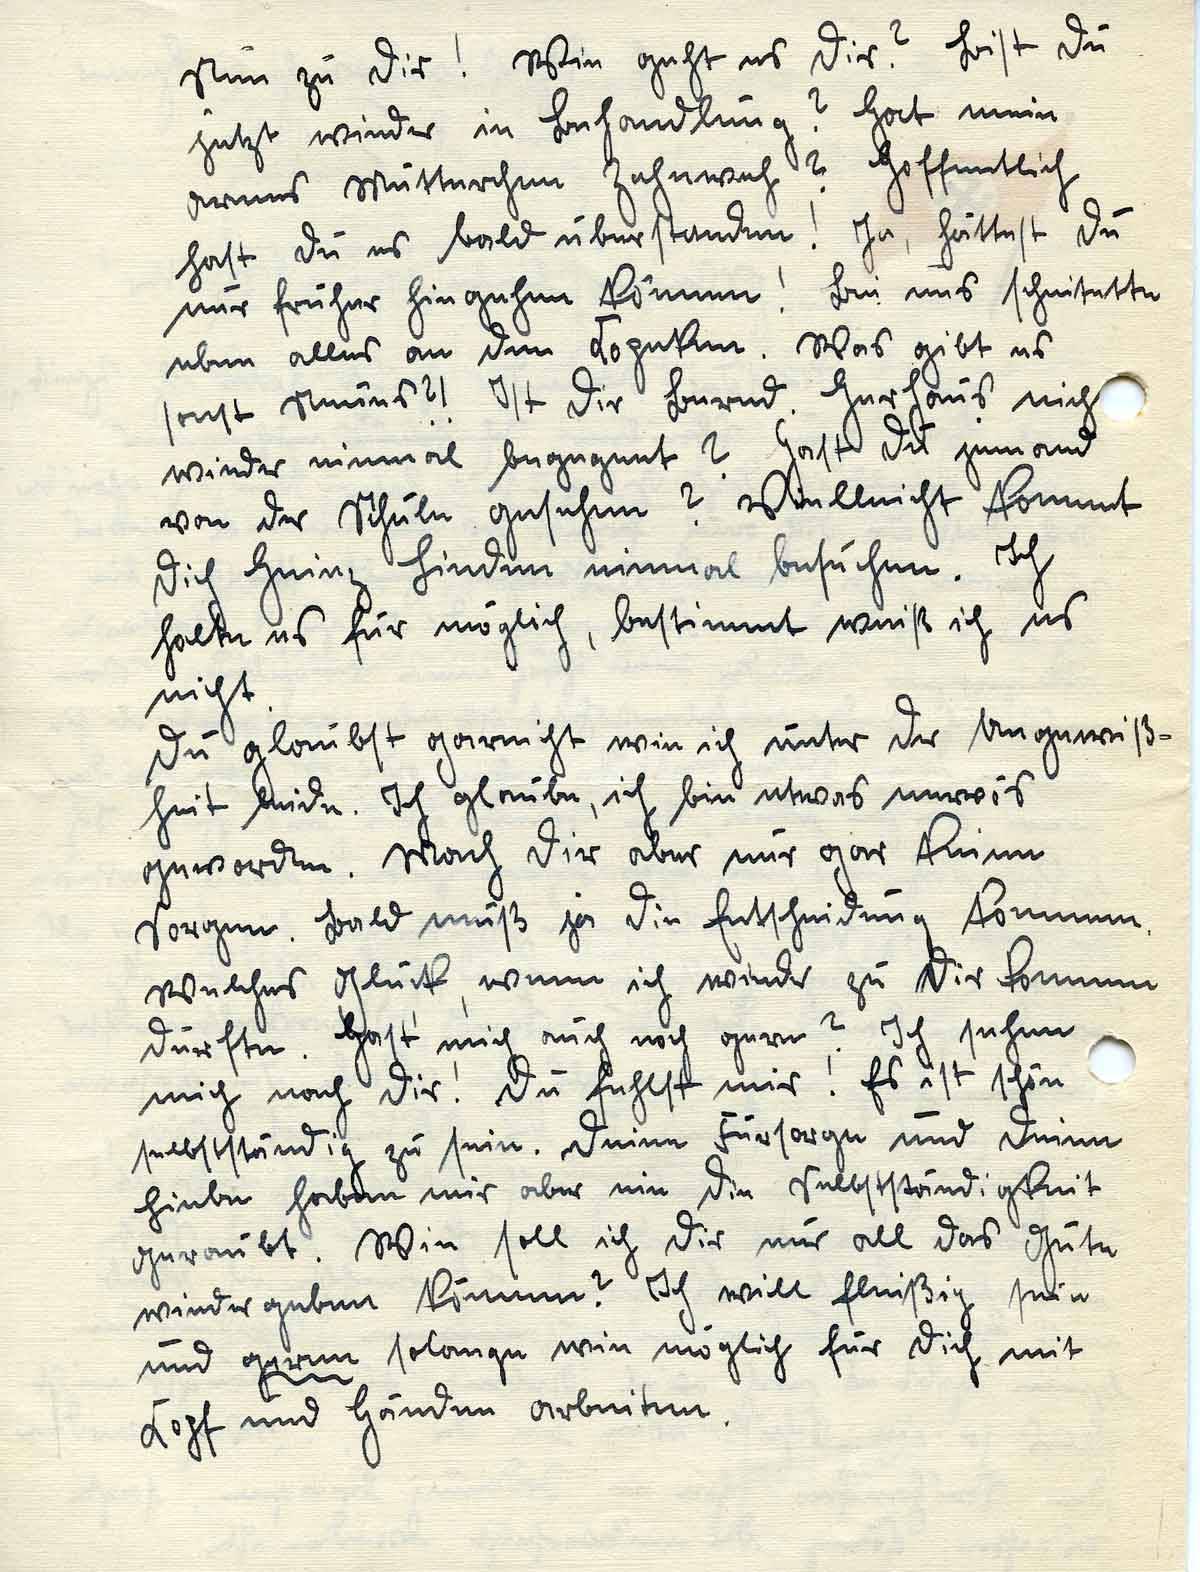 Nun zu Dir! Wie geht es Dir? Bist Du
jetzt wieder in Behandlung? Hat mein
armes Mütterchen Zahnweh? Hoffentlich
hast Du es bald überstanden! Ja, hättest Du
nur früher hingehen können! Bei uns scheiterte
eben alles an den Kopeken. Was gibt es
sonst Neues?! Ist Dir Bernd. Gerhaus nich
wieder einmal begegnet? Hast Du jemand
von der Schule gesehen? Vielleicht kommt
Dich Heinz Linden einmal besuchen. Ich
halte es für möglich, bestimmt weiß ich es
nicht.
Du glaubst garnicht wie ich unter der Ungewiß-
heit leide. Ich glaube, ich bin etwas nervös
geworden. Mach Dir aber nur gar keine
Sorgen. Bald muß ja die Entscheidung kommen.
Welches Glück, wenn ich wieder zu Dir kommen
dürfte. Hast mich auch noch gern? Ich sehne
mich nach Dir! Du fehlst mir! Es ist schön
selbstständig zu sein. Deine Fürsorge und Deine
Liebe haben mir aber nie die Selbstständigkeit
geraubt. Wie soll ich Dir nur all das Gute
wiedergeben können? Ich will fleißig sein
und gerne solange wie möglich für Dich mit
Kopf und Händen arbeiten.